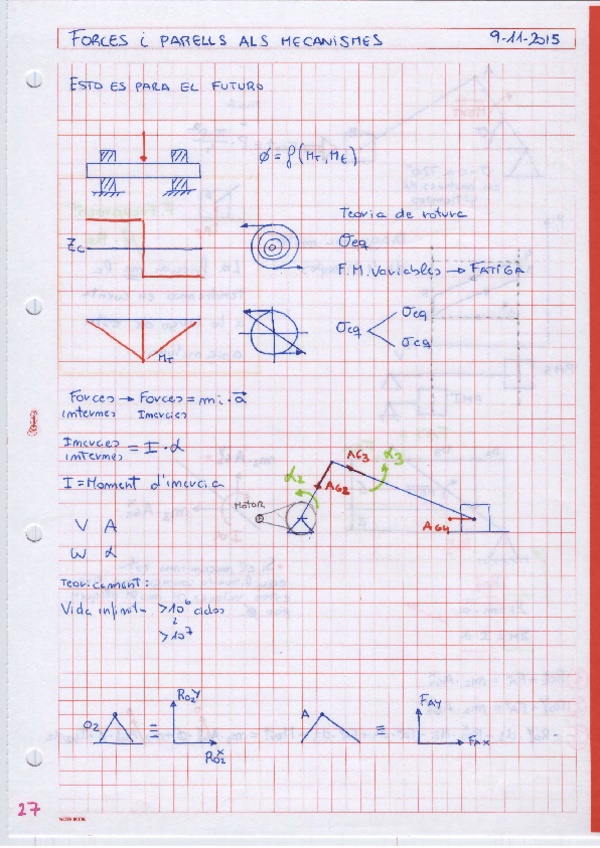 FORCES i PARELLS ALS MECANISMES 9-11-2015
ESTO ES PARA EL FUTURO
Ø = f (MT, ME)
Teoria de rotura
σeq
F.M. Variables → FATIGA
Zc
MT
σeq σeq
σeq
Forces → Forces = mi · a⃗
internes Inercies
Inercies = I · α
internes
I = Moment d'inercia
V A
W α
MOTOR
α2
AG2
AG3
α3
AG4
Teoricament:
Vida infinit >10⁶ ciclos
i
>10⁷
O2 ≡ RO2Y
RO2X
A ≡ FAY
FAX
27